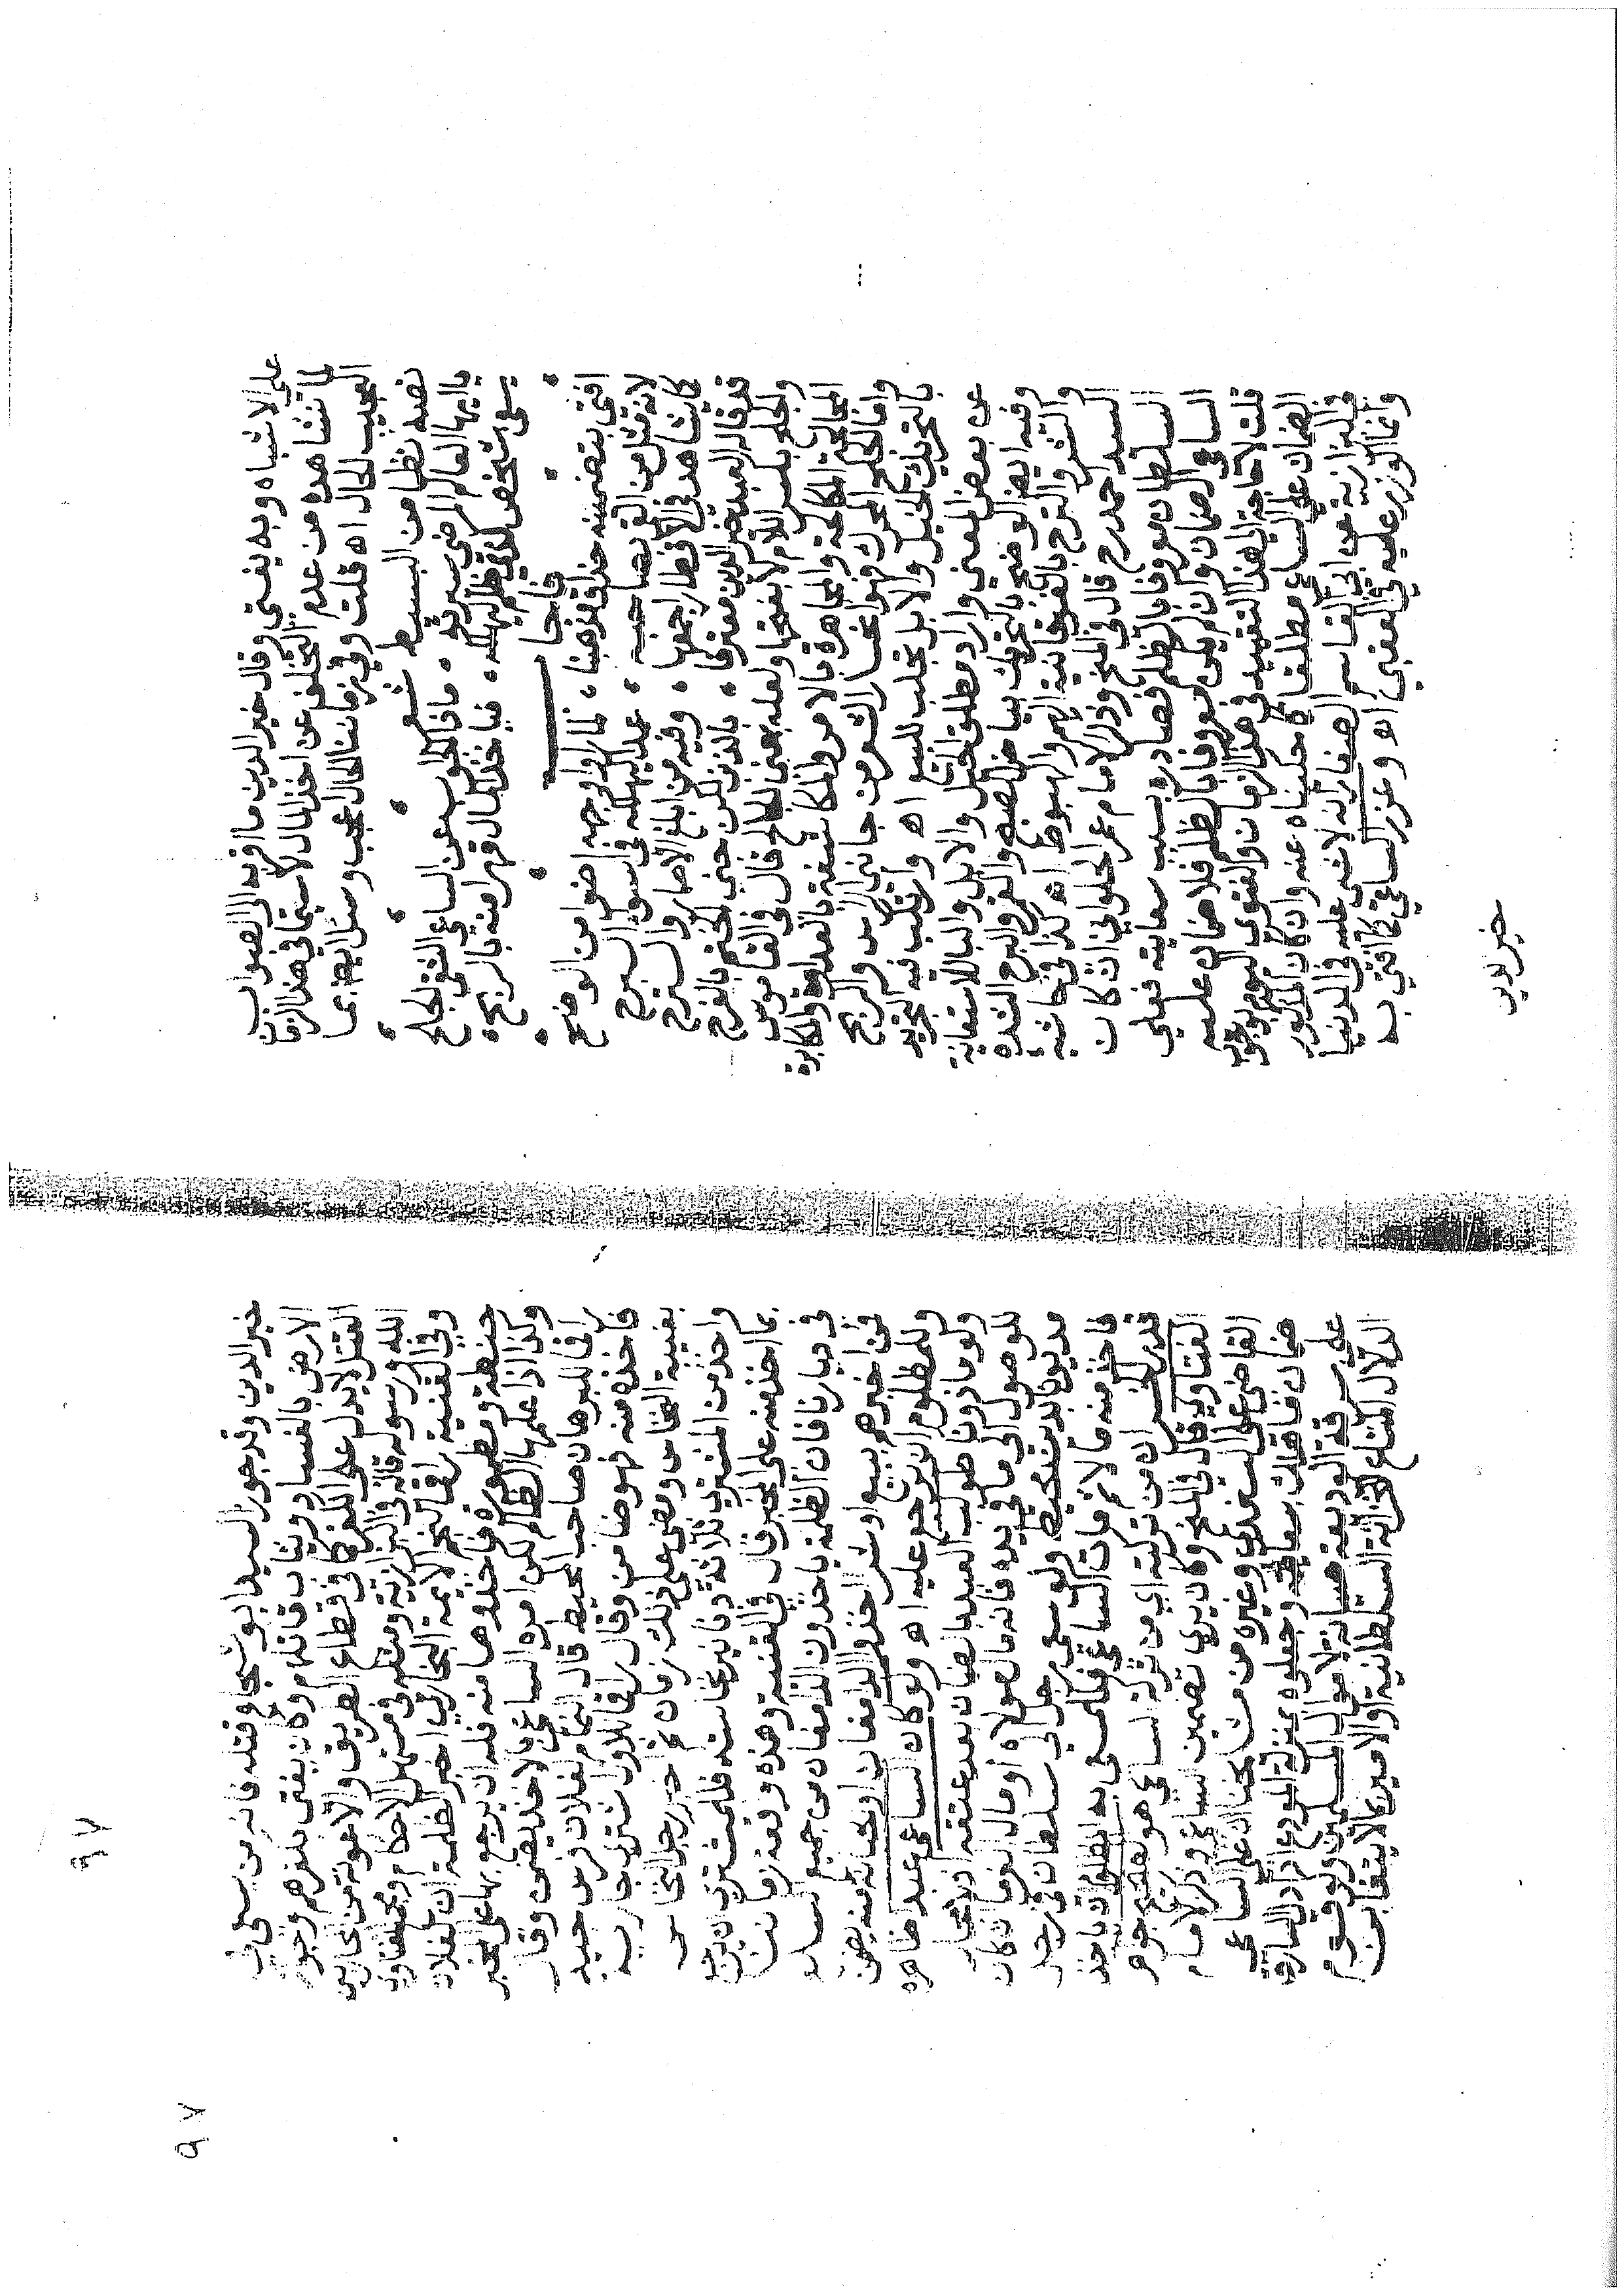 علي الاشباه وبه يفتى وقال خير الدين ما اقربه الى الصواب
لما نشاهده من عدم التخلف عن اخذ المال لا سيما في هذا الزمان
العجيب الحال اه قلت وفي زماننا الحال اعجب وسئل ايضا بما
نصه نظما من البسيط شعر
يا ايها العالم المرضي سيرته ماذا الجواب عن الساعي الشقي الجلح
يسعى بشخص لذي ظلم ليهلكه فياخذ المال قهرا منه بالربح
فاجاب
افتى بتضمينه حذاق مذهبنا لما راوا وجهه اضوا من الوضح
لانه مثل من القى بصاحبه عمدا ليهلكه في
كما يشاهد في الاقطار اجمعها وفيه من ابلغ الاضرار و
قد قاله العبد خير الدين معترفا بالذنب لكن حتى الختم بالفرح
والجلح بكسر اللام لا بفتحها ولعله بمعنى الجالح قال في القاموس
المجالحة المكالحة والمجاهرة بالامر والمكاشفة بالعداوة والمكابرة
واما الجلح المحرك فهو انحسار الشعر من جانبي الراس والربح
بالتحريك الخيل والابل تجلب للبيع اه وارتكب فيه التجريد
عن بعض المعنى واراد مطلق الخيل والابل والباء للاستعانة
وفيه ايضا الوضح بالتحريك بياض الصبح والقمر والبرح الشدة
والشر والترح بالفوقانية الهم والهبوط اه كذا في حاشية
السيد احمد رح قال في المنح وذكر الامام عمر الحلواني ان كان
السلطان معروفا بالظلم فصادره بسبب سعايته فعلى
الساعي الضمان وان لم يكن معروفا بالظلم فلا ضمان عليه
قلت لا حاجة لهذا التقييد في هذا الزمان والفتوى اليوم بوجوب
الضمان علي الساعي مطلقا كما حكيناه عنه وان كان المذكور
في البزازية عن ابي القاسم الصفار انه لا شيء عليه في الدنيا
وانما الوزر عليه في العقبى اه وعزر الساعي كما افتى به
خير الدين
٩٧
٩٧
خير الدين وقد جوز السيد ابو شجاع قتله فانه من يسعى في
الارض بالفساد ويثاب قاتلهم وكان يفتى بكفرهم
القتل لا يدل على الكفر كما في قطاع الطريق والاعونة من محاربين
الله ورسوله قاله في البزازية ومثله في مشتمل الاحكام ومجمع الفتاوى
وفي القنية راقما لنجم الايمة البخاري اخبر الظلمة ان لفلان
حنطة في مطمورة فاخذوها منه فله ان يرجع بها على المخبر
وكذا اذا علمها الظالم لكن امره الساعي بالاخذ يضمن وقال
راقما للبرهان صاحب المحيط قال النمام لفلان فرس جيد
فاخذه منه فهو ضامن وقال راقما للاول اشترى جارية
بغيبة النخاس ومضى على ذلك زمان ثم اخبر رجل النخاس
واخذ من المشترى ثلاثة دنانير نخاسته فللمشترى ان يرجع
بما اخذ منه على المخبر قال في القنية وهذه وقعة زماننا
في ديارنا فان الظلمة ياخذون الدامغان من جميع
فمن اخبرهم ببيع او شراء اخذوا الدامغان او نخاسة منه يضمن
وللمظلوم ان يرجع عليه اه ولو كان الساعي عبدا ظاهره
ولو ماذونا طولب العبد بالضمان بعد عتقه
للوصول الى ما في يده فانه مال مولاه او مال الغرماء ان كان
مديونا بدين محيط ولو سعى رجل الى سلطان في رجل
فاخذ منه مالا ثم مات الساعي فللمسعى به المظلوم ان ياخذ
قدر الخسران من تركته اي من تركة الساعي هو الصحيح جواهر
الفتاوى قال في المنح وكان يرى تضمين الساعي وذكر الامام
القاضي على السغدي وغيره من مشايخنا ان على الساعي
ضمان ما هلك بسعايته وجعلوه بمنزلة المودع اذا دل السارق
علي سرقة الوديعة صيانة لاموال المسلمين ولو قوم
الدلال المتاع لخزانة السلطانية والامير بما لا يتغابن